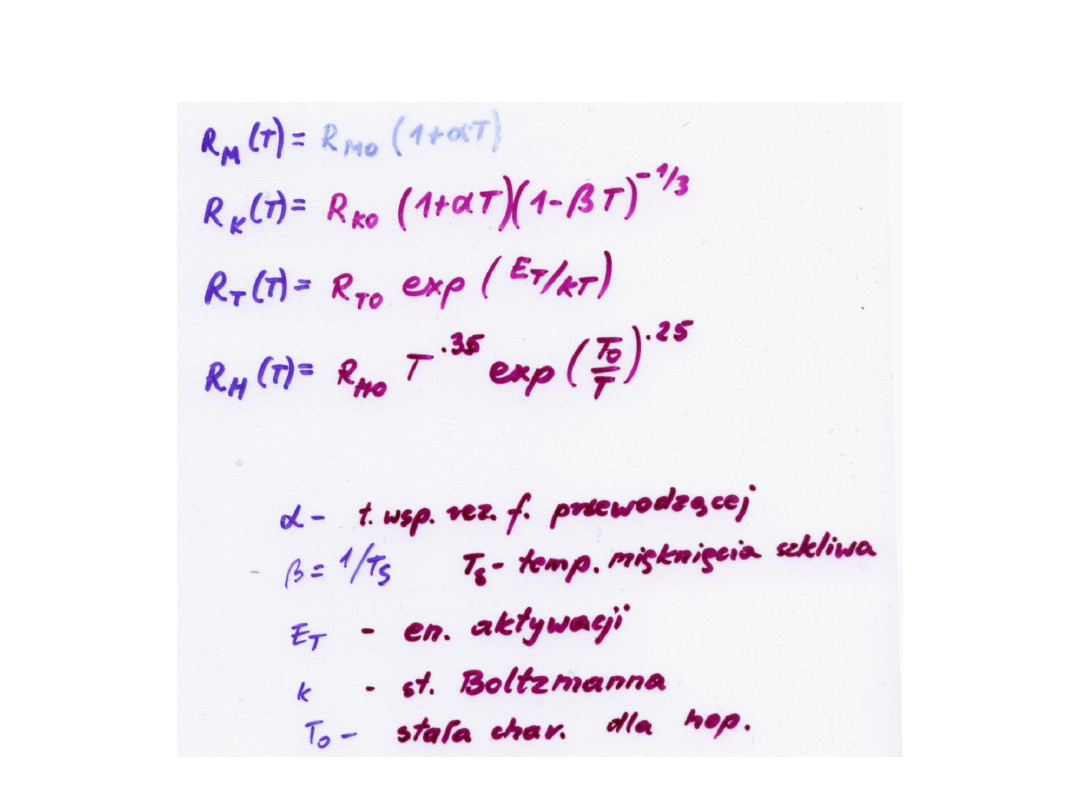 R_M(T) = R_M0 (1+αT)
R_K(T) = R_K0 (1+αT)(1-βT)^-1/3
R_T(T) = R_T0 exp (E_T/kT)
R_H(T) = R_H0 T^.35 exp (T_0/T)^.25
α - t. wsp. rez. f. przewodzącej
β = 1/T_S T_S - temp. mięknięcia szkliwa
E_T - en. aktywacji
k - st. Boltzmanna
T_0 - stała char. dla hop.